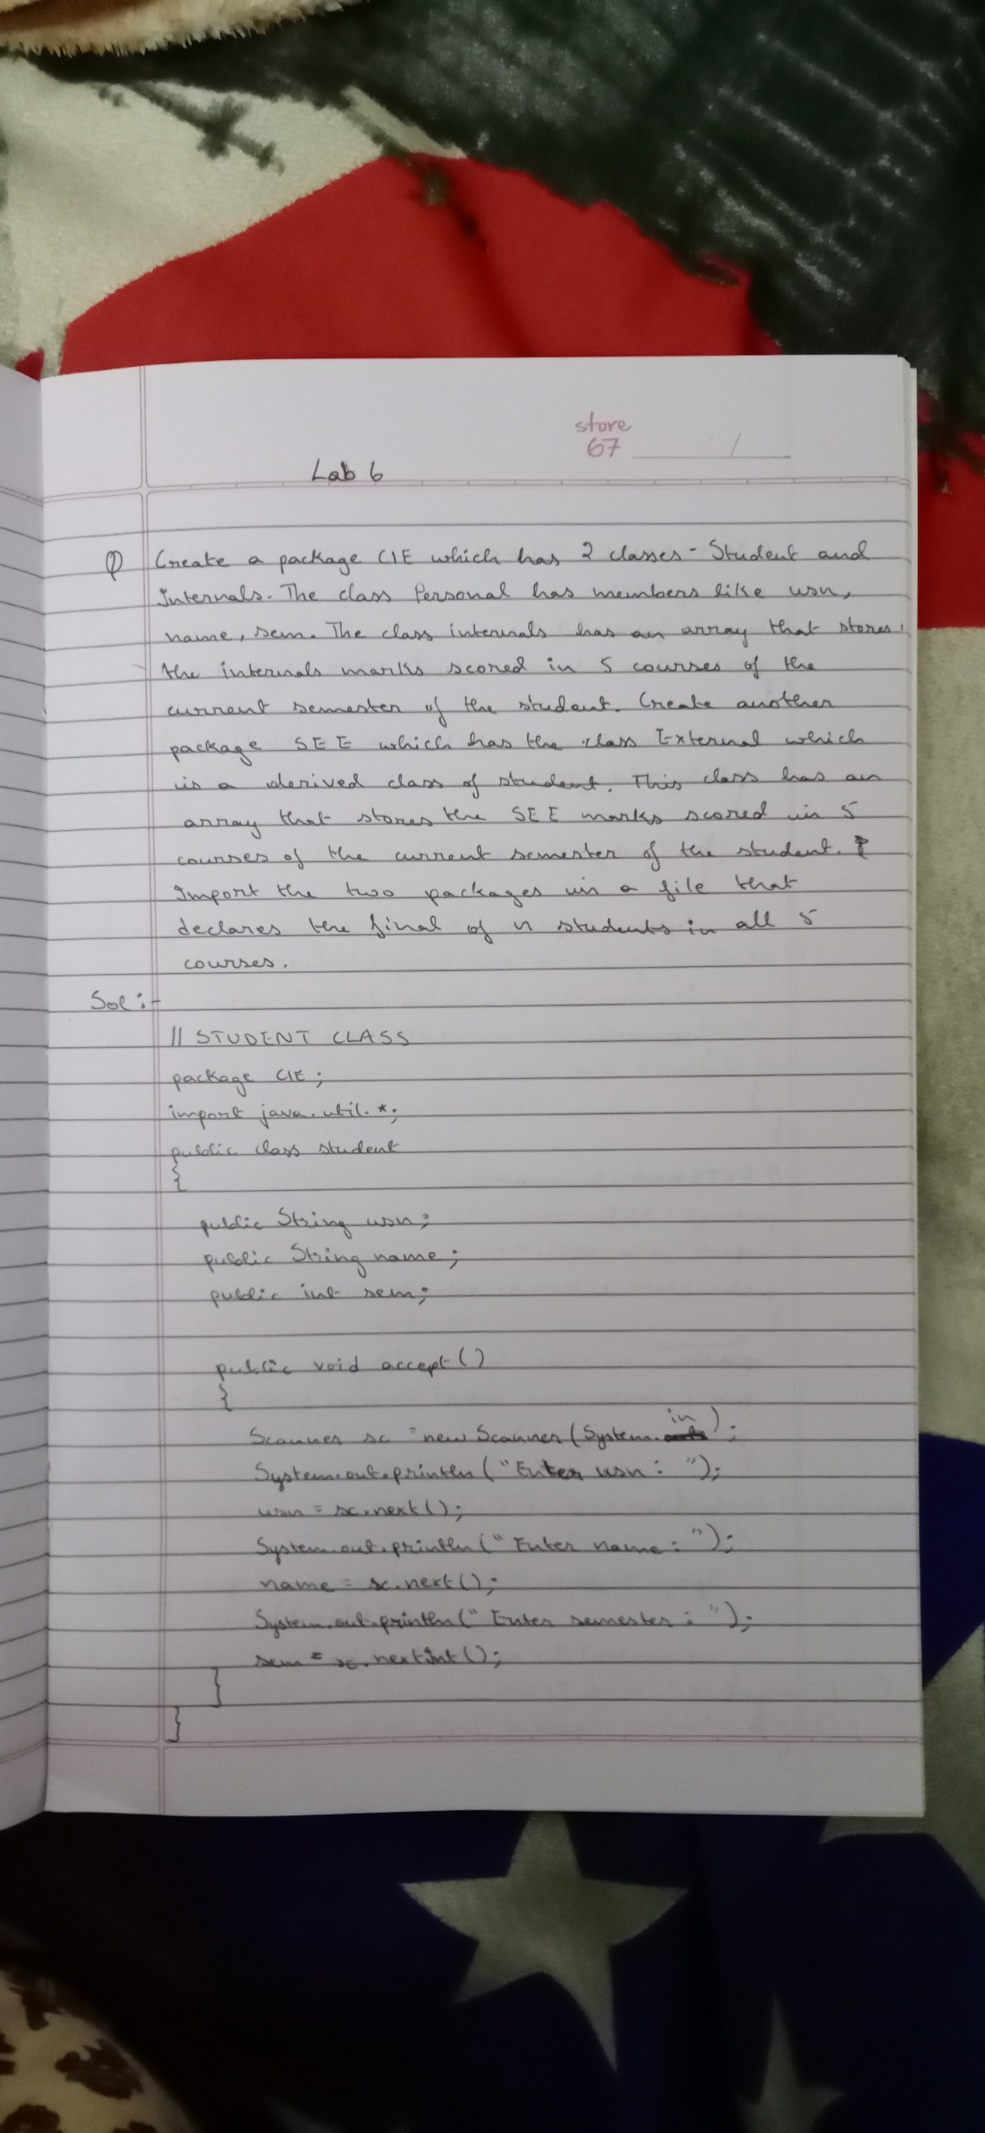 store
67
Lab 6
Q Create a package CIE which has 2 classes - Student and
Internals. The class Personal has members like usn,
name, sem. The class internals has an array that stores
the internals marks scored in 5 courses of the
current semester of the student. Create another
package SEE which has the class External which
is a derived class of student. This class has an
array that stores the SEE marks scored in 5
courses of the current semester of the student.
Import the two packages in a file that
declares the final of n students in all 5
courses.
Sol :-
// STUDENT CLASS
package CIE ;
import java.util.*;
public class student
{
public String usn;
public String name;
public int sem;
public void accept()
{
Scanner sc = new Scanner (System.in);
System.out.println ("Enter usn : ");
usn = sc.next();
System.out.println ("Enter name : ");
name = sc.next();
System.out.println (" Enter semester : ");
sem = sc.nextInt();
}
}